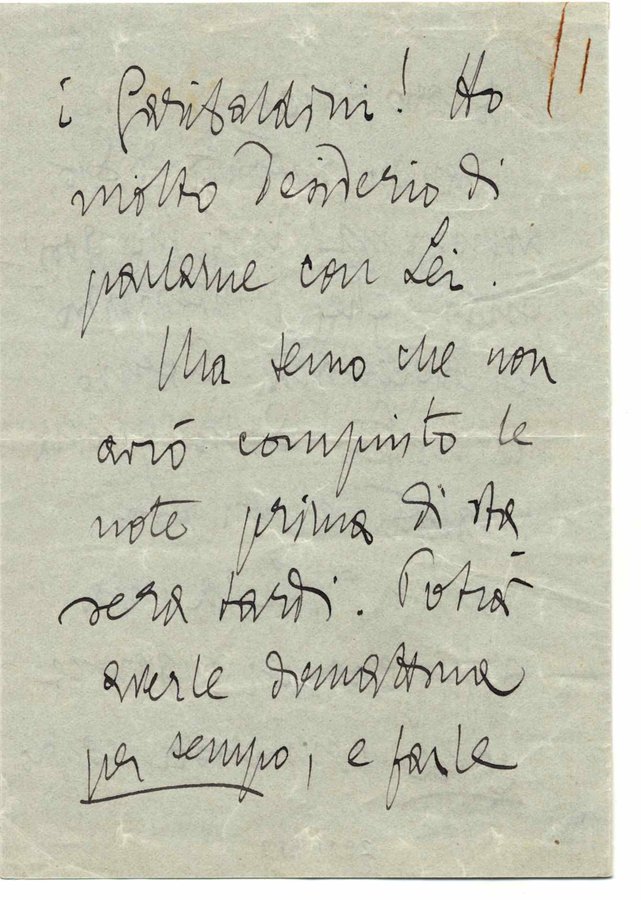 i Garibaldini! Ho
molto desiderio di
parlarne con Lei.
Ma temo che non
avrò compiuto le
note prima di sta
sera tardi. Potrà
averle domattina
per tempo, e farle